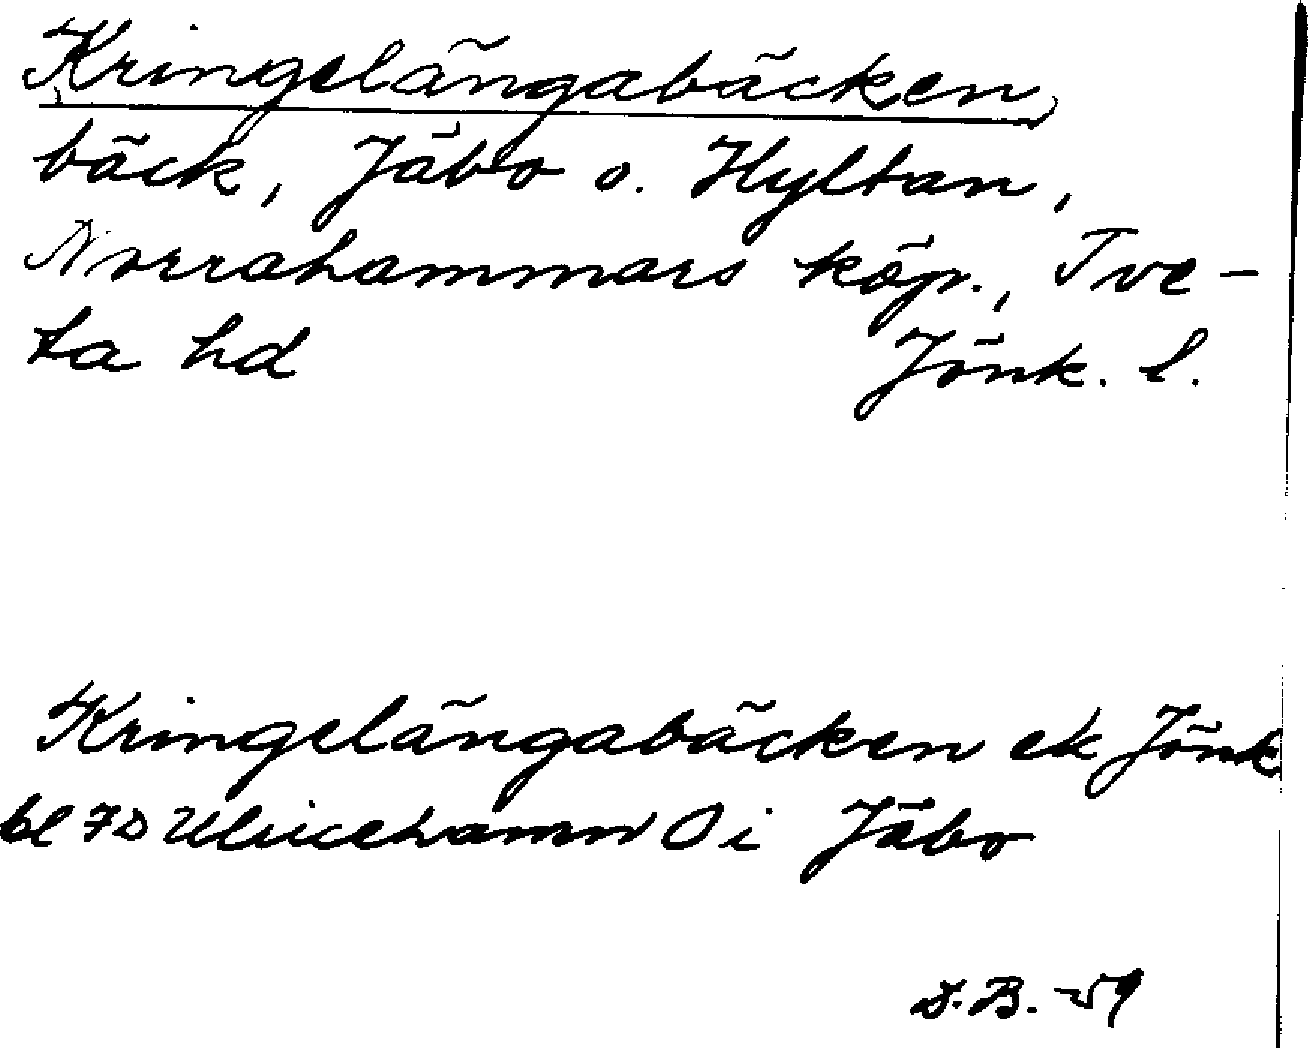 Kringelängabäcken,
bäck, Jäbo o. Hyltan,
Norrahammars köp., Tve-
ta hd Jönk. l.
Kringelängabäcken ek Jönk
bl 7D Ulricehamn O i Jäbo
-59